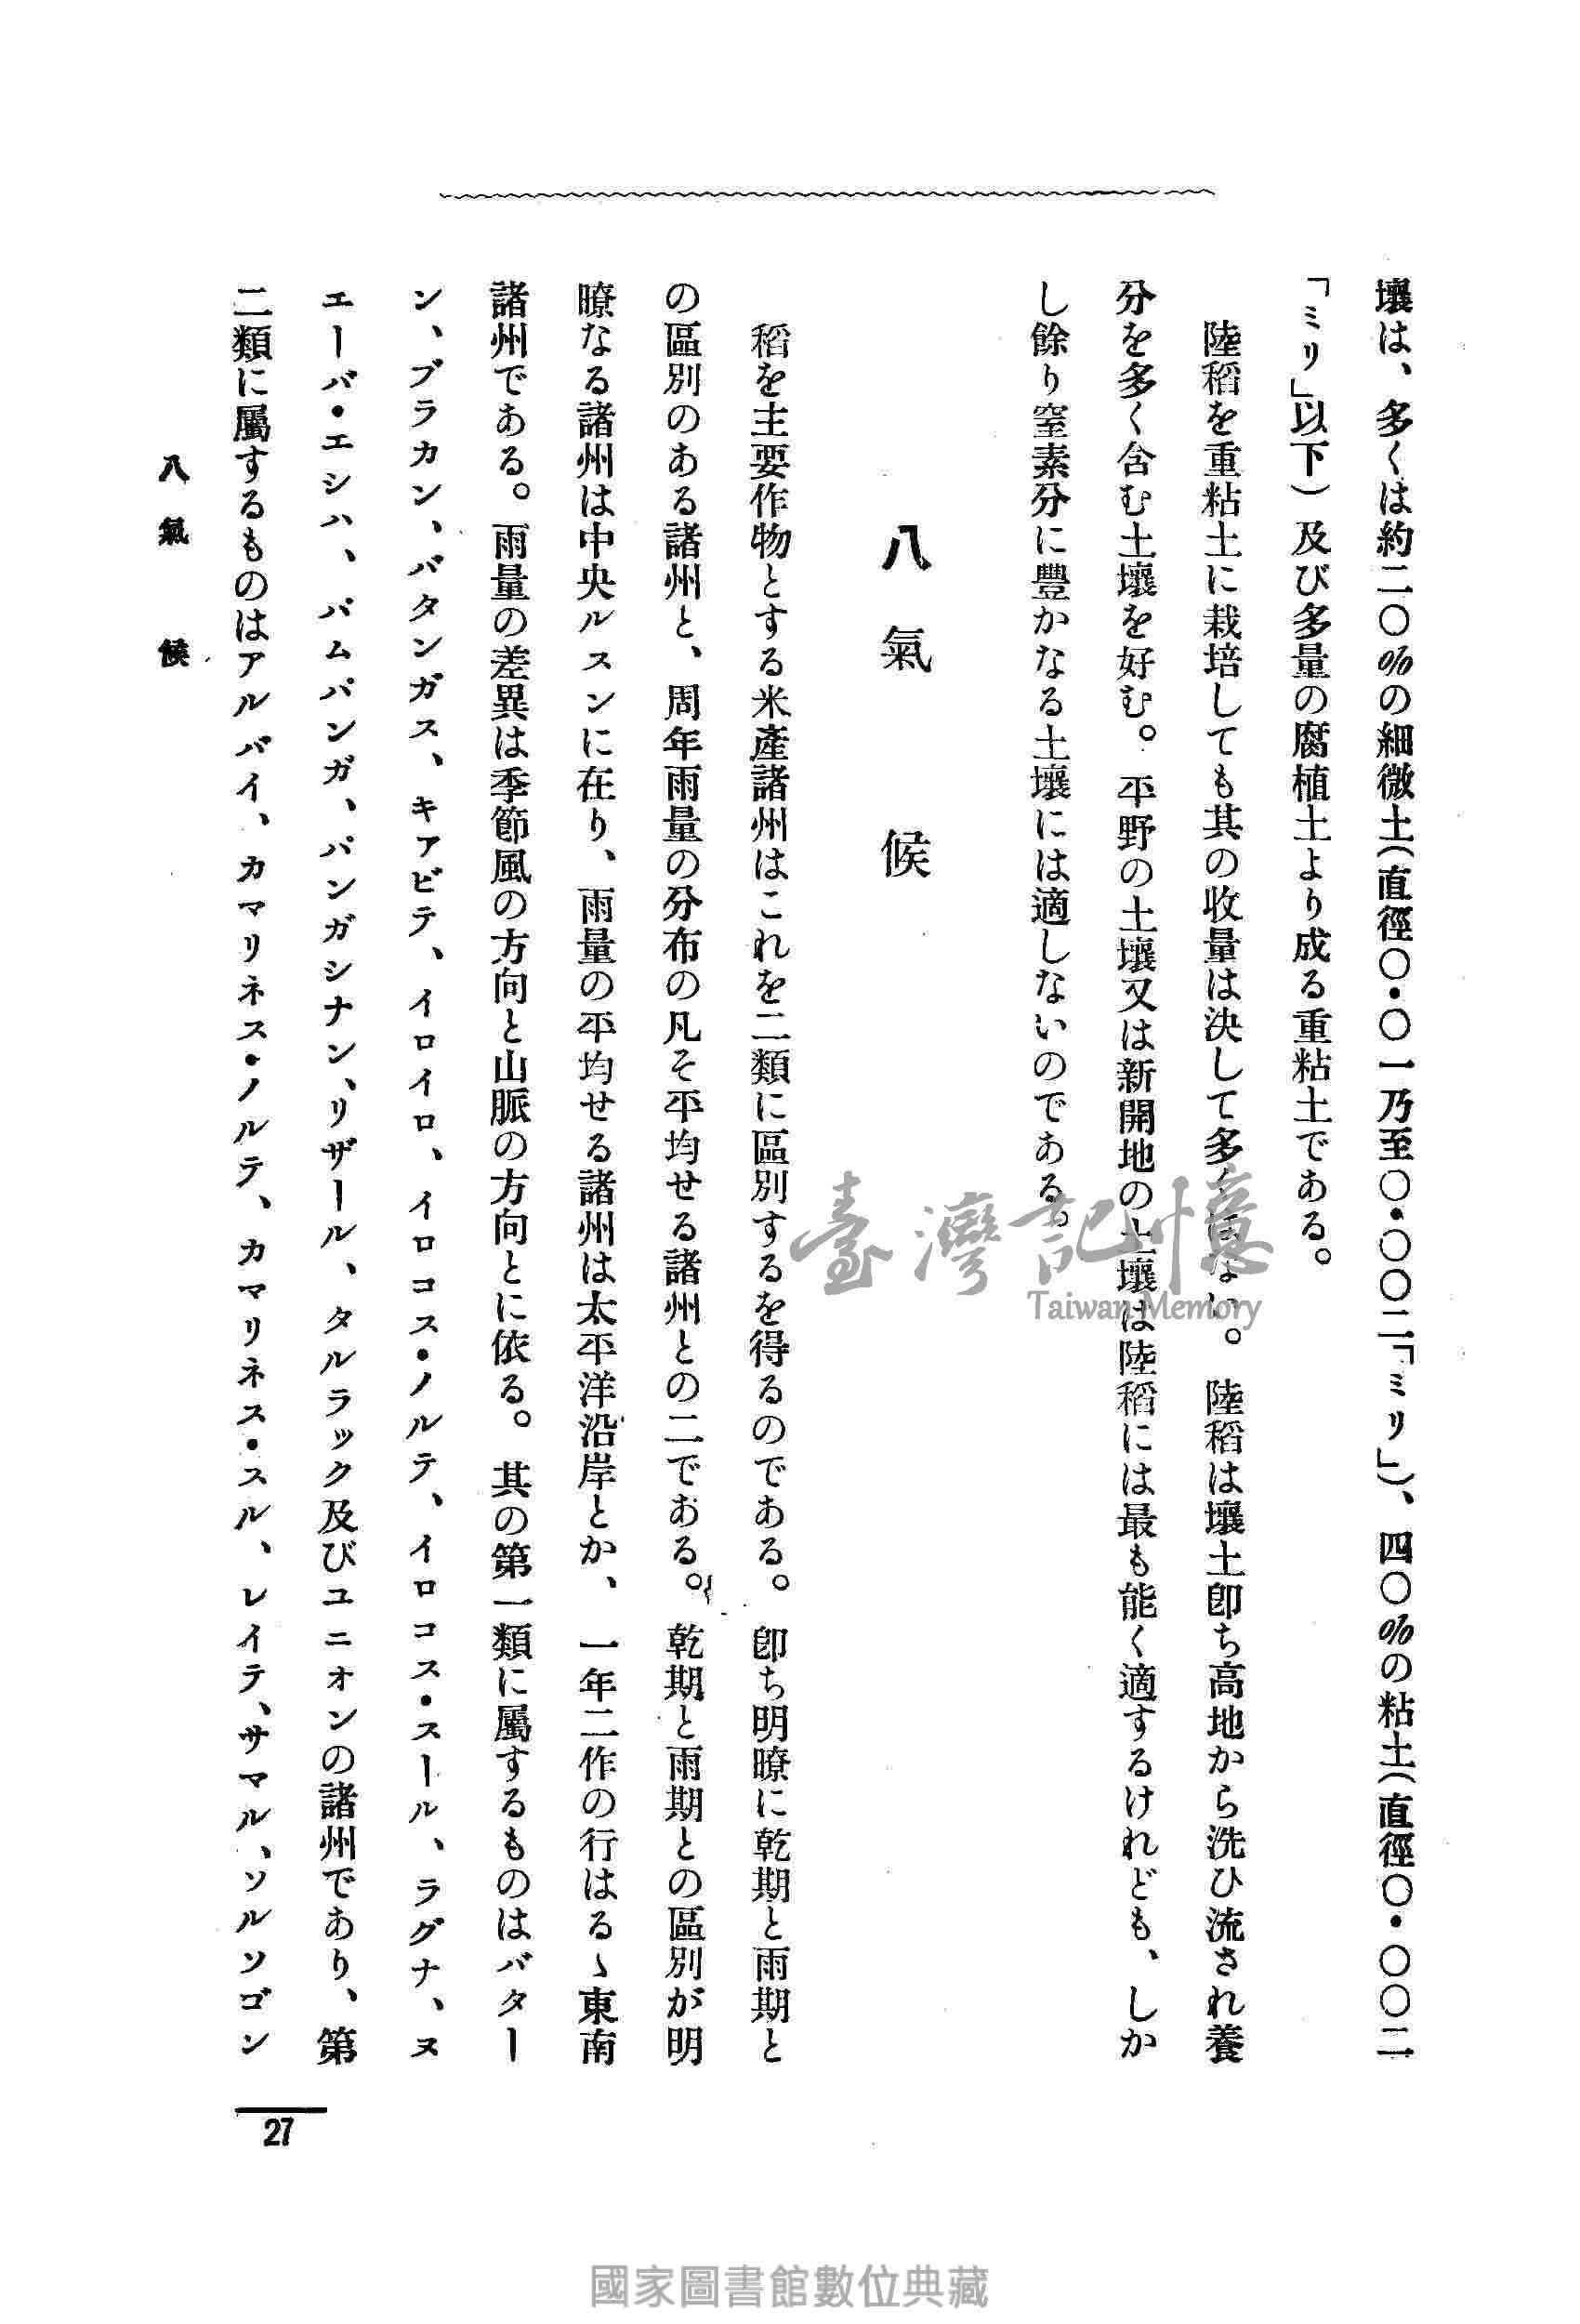 壤は、多くは約二〇%の細微土(直徑〇・〇一乃至〇・〇〇二「ミリ」)、四〇%の粘土(直徑〇・〇〇二
「ミリ」以下)及び多量の腐植土より成る重粘土である。
陸稻を重粘土に栽培しても其の收量は決して多くはない。陸稻は壤土卽ち高地から洗ひ流され養
分を多く含む土壤を好む。平野の土壤又は新開地の土壤は陸稻には最も能く適するけれども、しか
し餘り窒素分に豐かなる土壤には適しないのである。
八 氣 候
稻を主要作物とする米產諸州はこれを二類に區別するを得るのである。卽ち明瞭に乾期と雨期と
の區別のある諸州と、周年雨量の分布の凡そ平均せる諸州との二である。乾期と雨期との區別が明
瞭なる諸州は中央ルスンに在り、雨量の平均せる諸州は太平洋沿岸とか、一年二作の行はるゝ東南
諸州である。雨量の差異は季節風の方向と山脈の方向とに依る。其の第一類に屬するものはバター
ン、ブラカン、バタンガス、キアビテ、イロイロ、イロコス・ノルテ、イロコス・スール、ラグナ、ヌ
エーバ・エシハ、バムパンガ、パンガシナン、リザール、タルラック及びユニオンの諸州であり、第
二類に屬するものはアルバイ、カマリネス・ノルテ、カマリネス・スル、レイテ、サマル、ソルソゴン
八 氣 候
27
臺灣記憶
Taiwan Memory
國家圖書館數位典藏